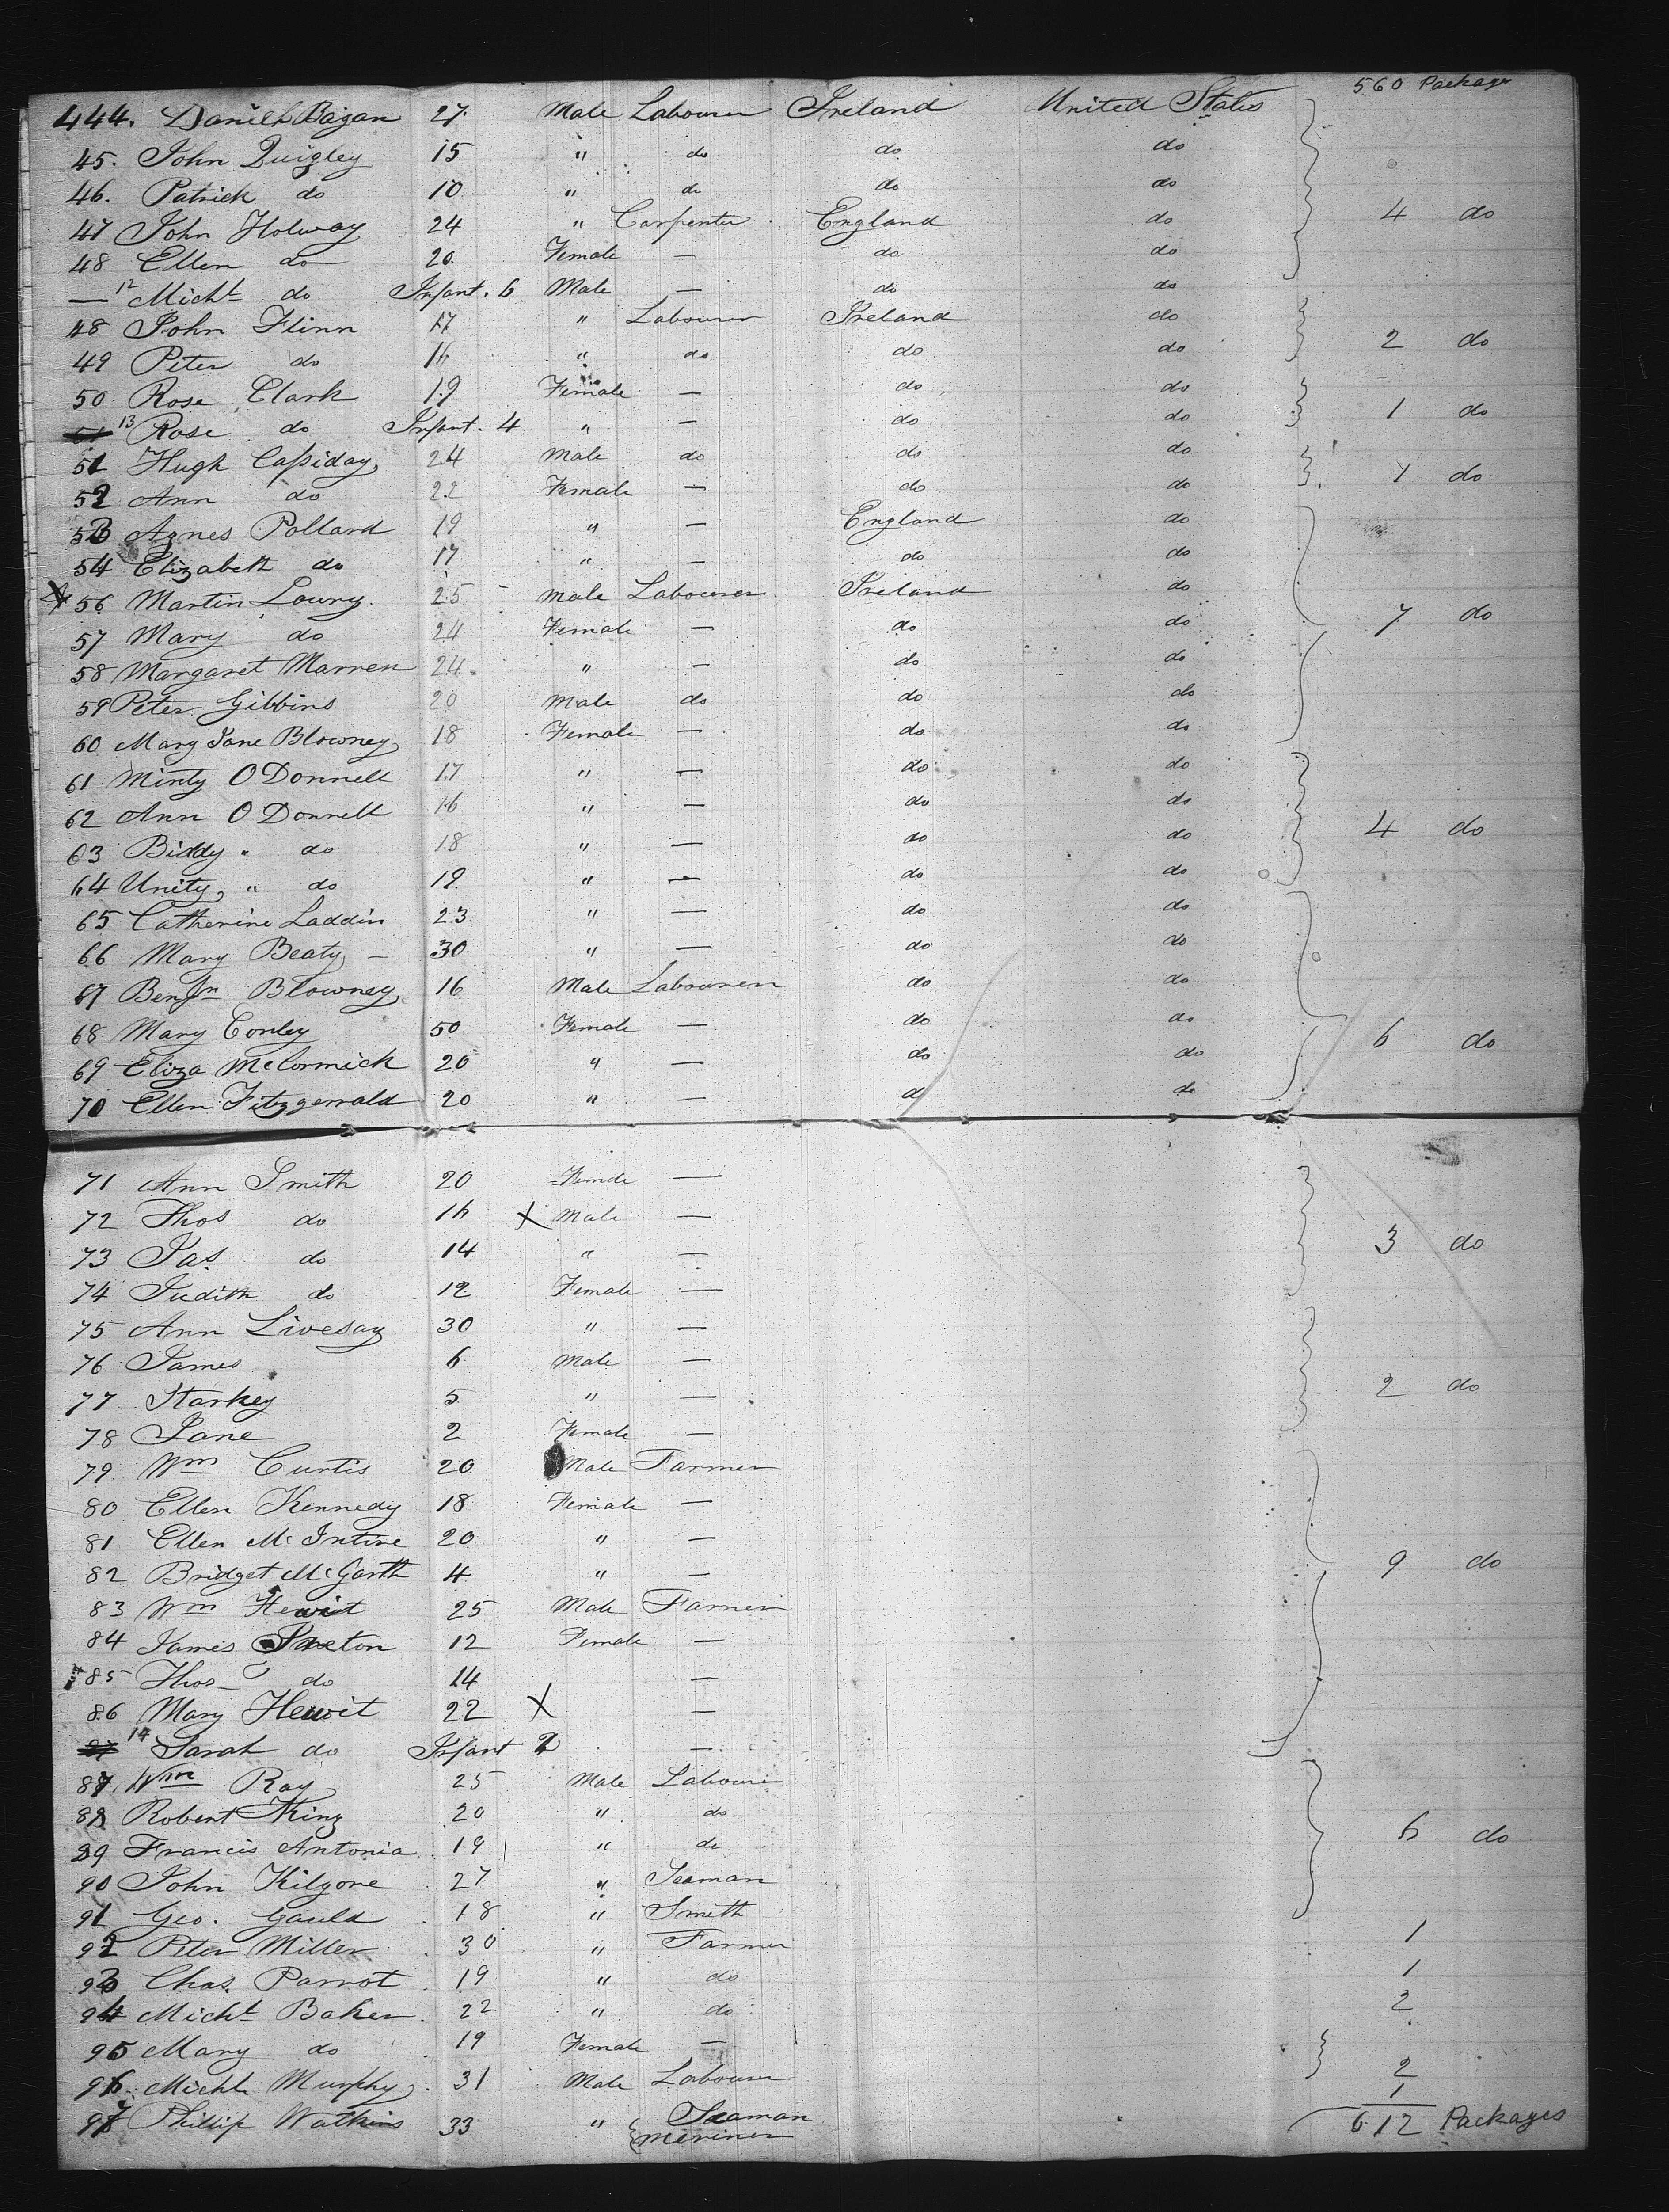 560 Packages
444. Daniel Bagan 27. Male Labourer Ireland United States
45. John Quigley 15 " do do do
46. Patrick do 10 " do do do 4 do
47 John Holway 24 " Carpenter England do
48 Ellen do 20 Female — do do
— 12 Michl do Infant. 6 Male — do do
48 John Flinn 17 " Labourer Ireland do
49 Peter do 16 " do do do 2 do
50 Rose Clark 19 Female — do do
13 Rose do Infant. 4 " — do do 1 do
51 Hugh Cassiday 24 Male do do do
52 Ann do 22 Female — do do 1 do
53 Agnes Pollard 19 " — England do
54 Elizabeth do 17 " — do do
56 Martin Lowry 25 Male Labourer Ireland do
57 Mary do 24 Female — do do 7 do
58 Margaret Marren 24 " — do do
59 Peter Gibbins 20 Male do do do
60 Mary Jane Blowney 18 Female — do do
61 Minty O Donnell 17 " — do do
62 Ann O Donnell 16 " — do do 4 do
63 Biddy " do 18 " — do do
64 Unity " do 19 " — do do
65 Catherine Laddin 23 " — do do
66 Mary Beaty — 30 " — do do
67 Benjn Blowney 16 Male Labourer do do
68 Mary Conley 50 Female — do do 6 do
69 Eliza McCormick 20 " — do do
70 Ellen Fitzgerrald 20 " — d do
71 Ann Smith 20 Female —
72 Thos do 16 X Male —
73 Jas. do 14 " — 3 do
74 Judith do 12 Female —
75 Ann Livesay 30 " —
76 James 6 Male —
77 Starkey 5 " — 2 do
78 Jane 2 Female —
79 Wm Curtis 20 Male Farmer
80 Ellen Kennedy 18 Female —
81 Ellen McIntire 20 " —
82 Bridget McGarth 4 " — 9 do
83 Wm Hewit 25 Male Farmer
84 James 12 Female —
85 Thos do 14 —
86 Mary Hewit 22 X —
14 Sarah do Infant 2 —
87 Wm Ray 25 Male Laboure
88 Robert King 20 " do
89 Francis Antonia 19 " do 6 do
90 John Kilgore 27 " Seaman
91 Geo. Gauld 18 " Smith
92 Peter Miller 30 " Farmer 1
93 Chas. Parrot 19 " do 1
94 Michl Baker 22 " do 2
95 Mary do 19 Female —
96 Michl Murphy 31 Male Labourer 2
1
97 Phillip Watkins 33 " Seaman 612 Packages
Meriner